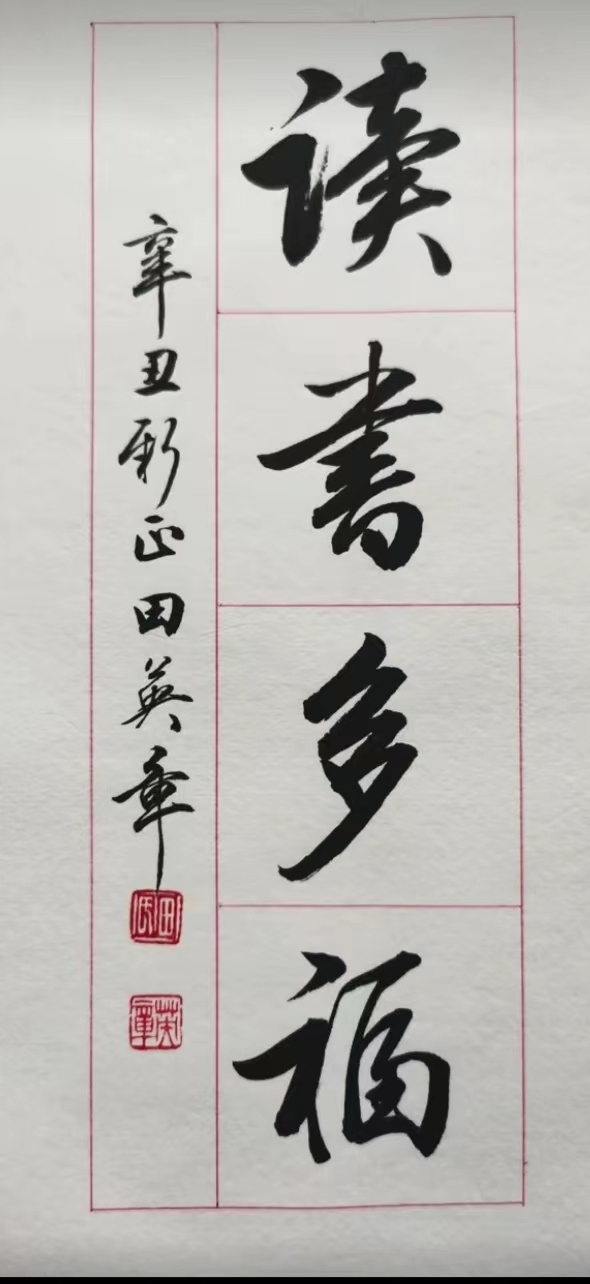 读書多福
辛丑新正田英章
田氏
英章